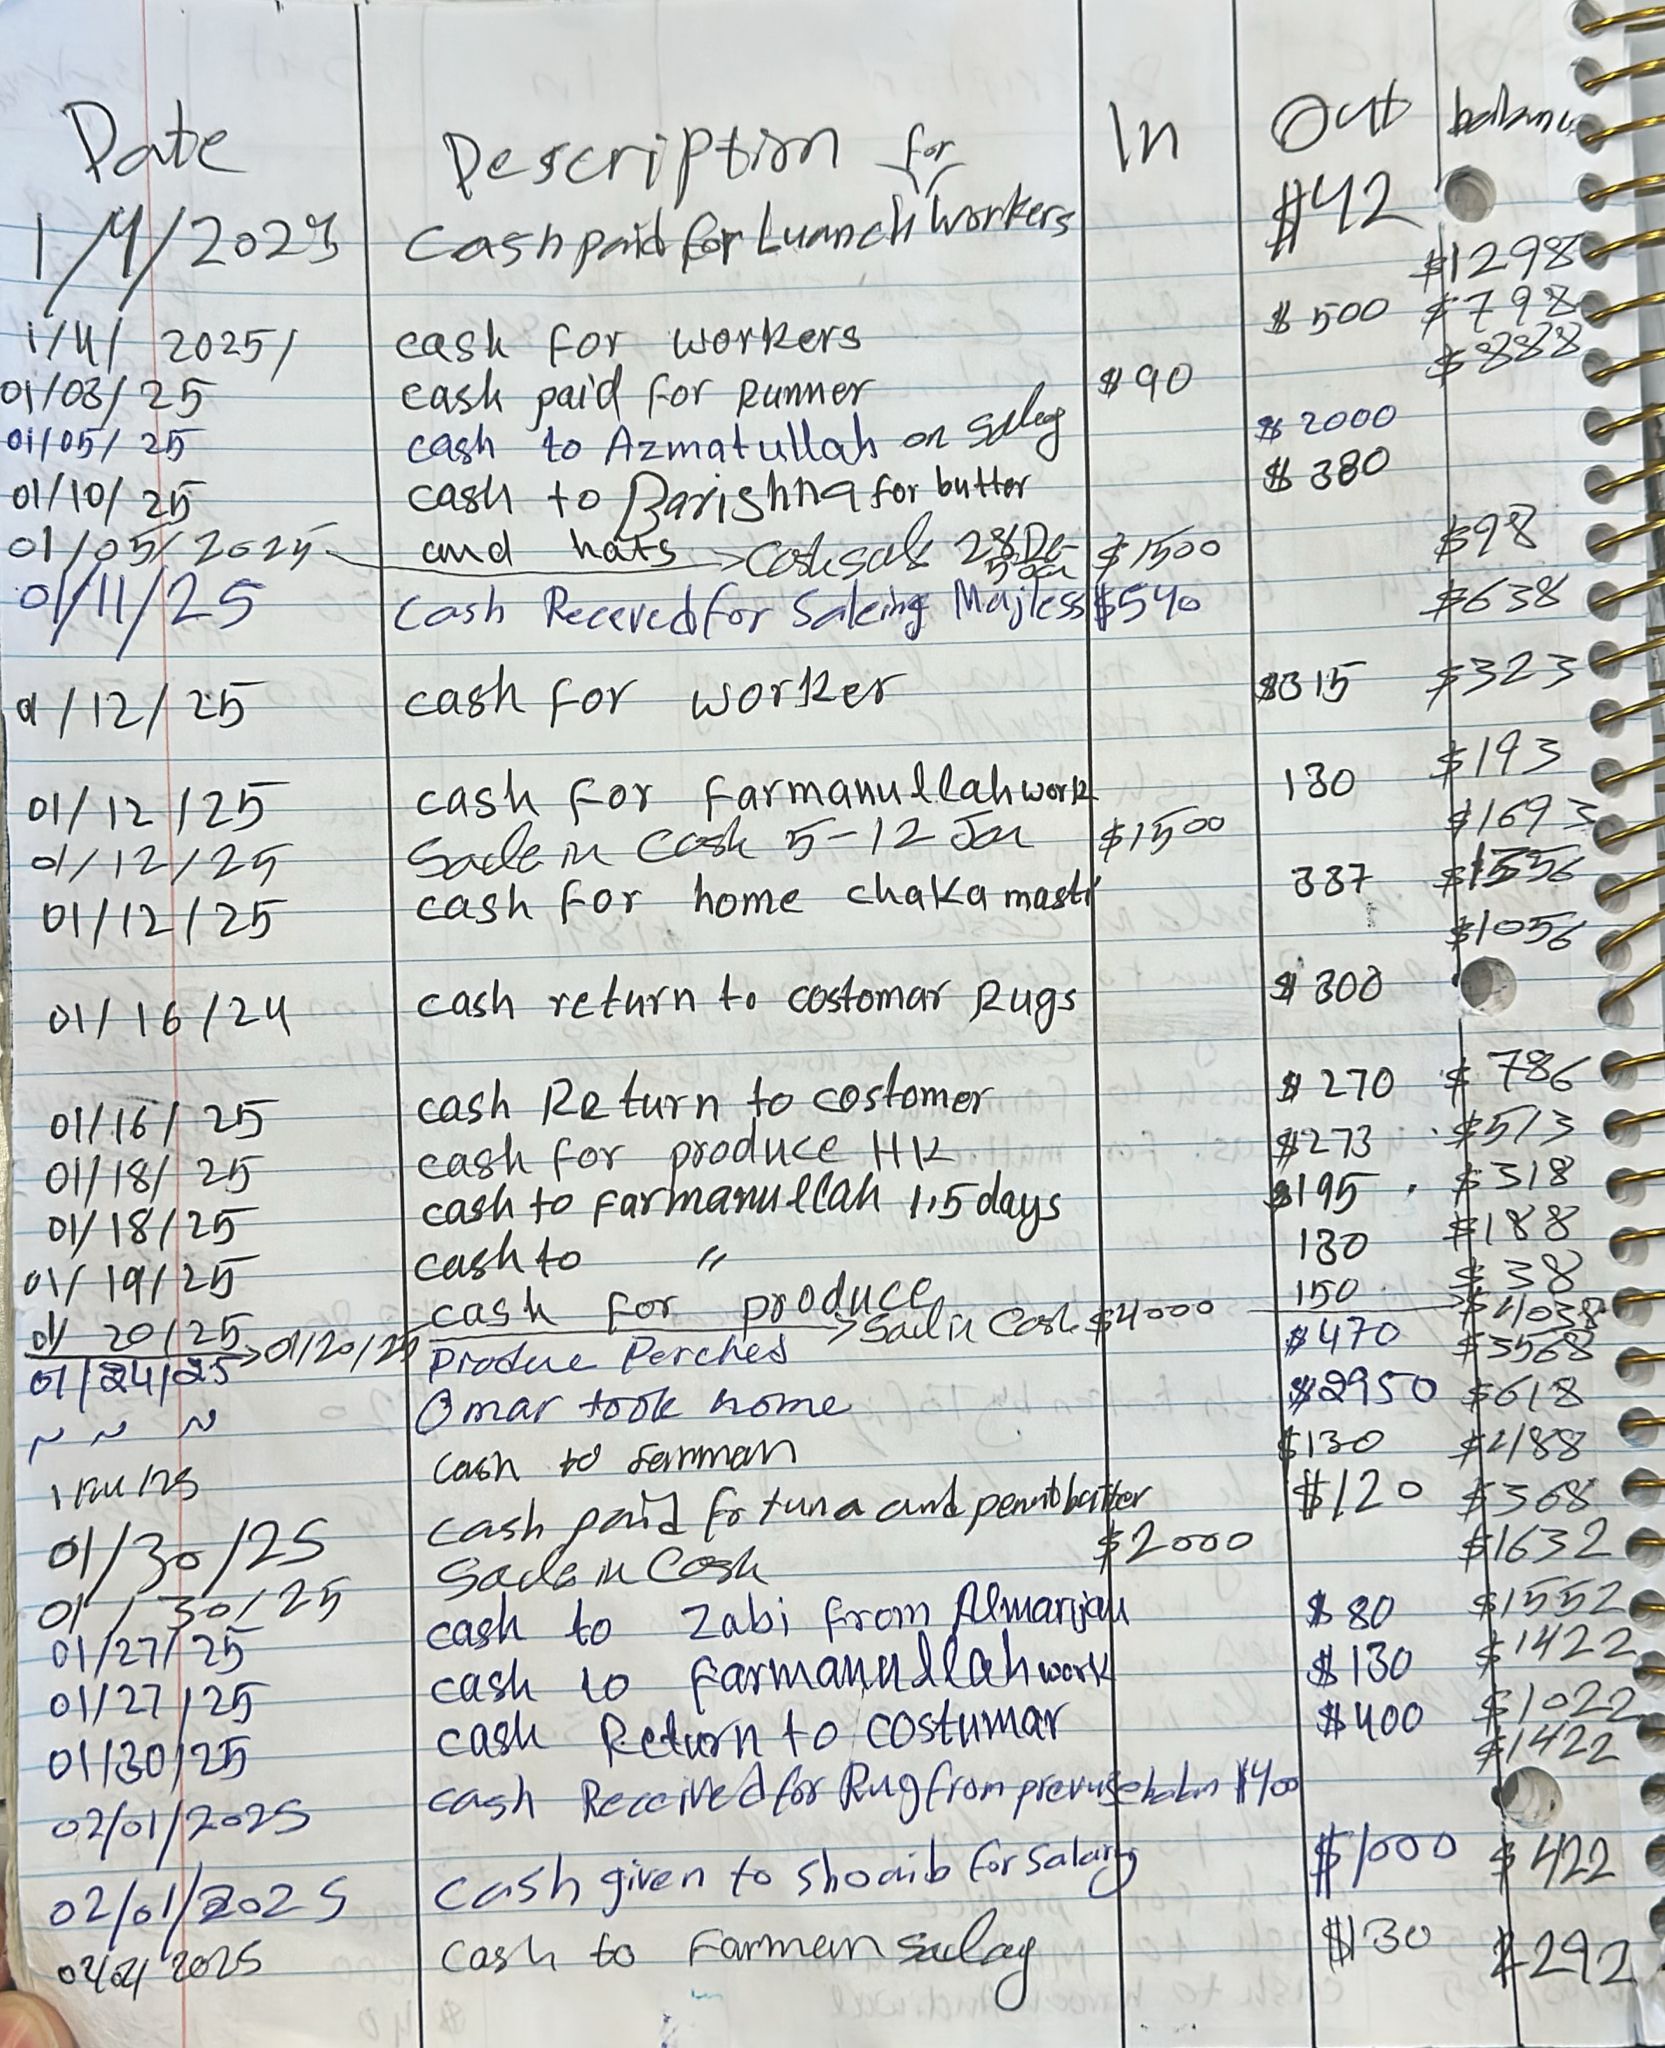 Date Description for In Out balanc
1/4/2025 Cash paid for Luanch Workers $42 $1298
1/4/2025/ cash for workers $500 $798
01/03/25 cash paid for Runner $90 $888
01/05/25 cash to Azmatullah on $2000
01/10/25 cash to Barishna for butter $380
01/05/2025 and hats → Cash sale 28 De- 5 Jan $1500 $98
01/11/25 Cash Receved for Saleing Majless $540 $638
01/12/25 cash for worker $315 $323
01/12/25 cash for Farmanullah work 130 $193
01/12/25 Sale in Cash 5-12 Jan $1500 $1693
01/12/25 cash for home chaka mast 337 $1356
$1056
01/16/24 cash return to costomar Rugs $300
01/16/25 cash Return to costomer $270 $786
01/18/25 cash for produce HK $273 $513
01/18/25 cash to Farmanullah 1,5 days $195 $318
01/19/25 cash to " 130 $188
01/20/25 cash for produce 150 $38
→ 01/20/25 → Sale in Cash $4000 → $4038
01/24/25 Produce Perches $470 $3568
~ ~ ~ Omar took home $2950 $618
cash to Farman $130 $488
01/30/25 cash paid fr tuna and penntbutter $120 $368
01/30/25 Sale in Cash $2000 $1632
01/27/25 cash to Zabi from Almarijan $80 $1552
01/27/25 cash to Farmanullah work $130 $1422
01/30/25 cash Return to costumar $400 $1022
$1422
02/01/2025 cash Received for Rug from $400
02/01/2025 Cash given to Shoaib for Salary $1000 $422
2025 Cash to Farman Salay $130 $292